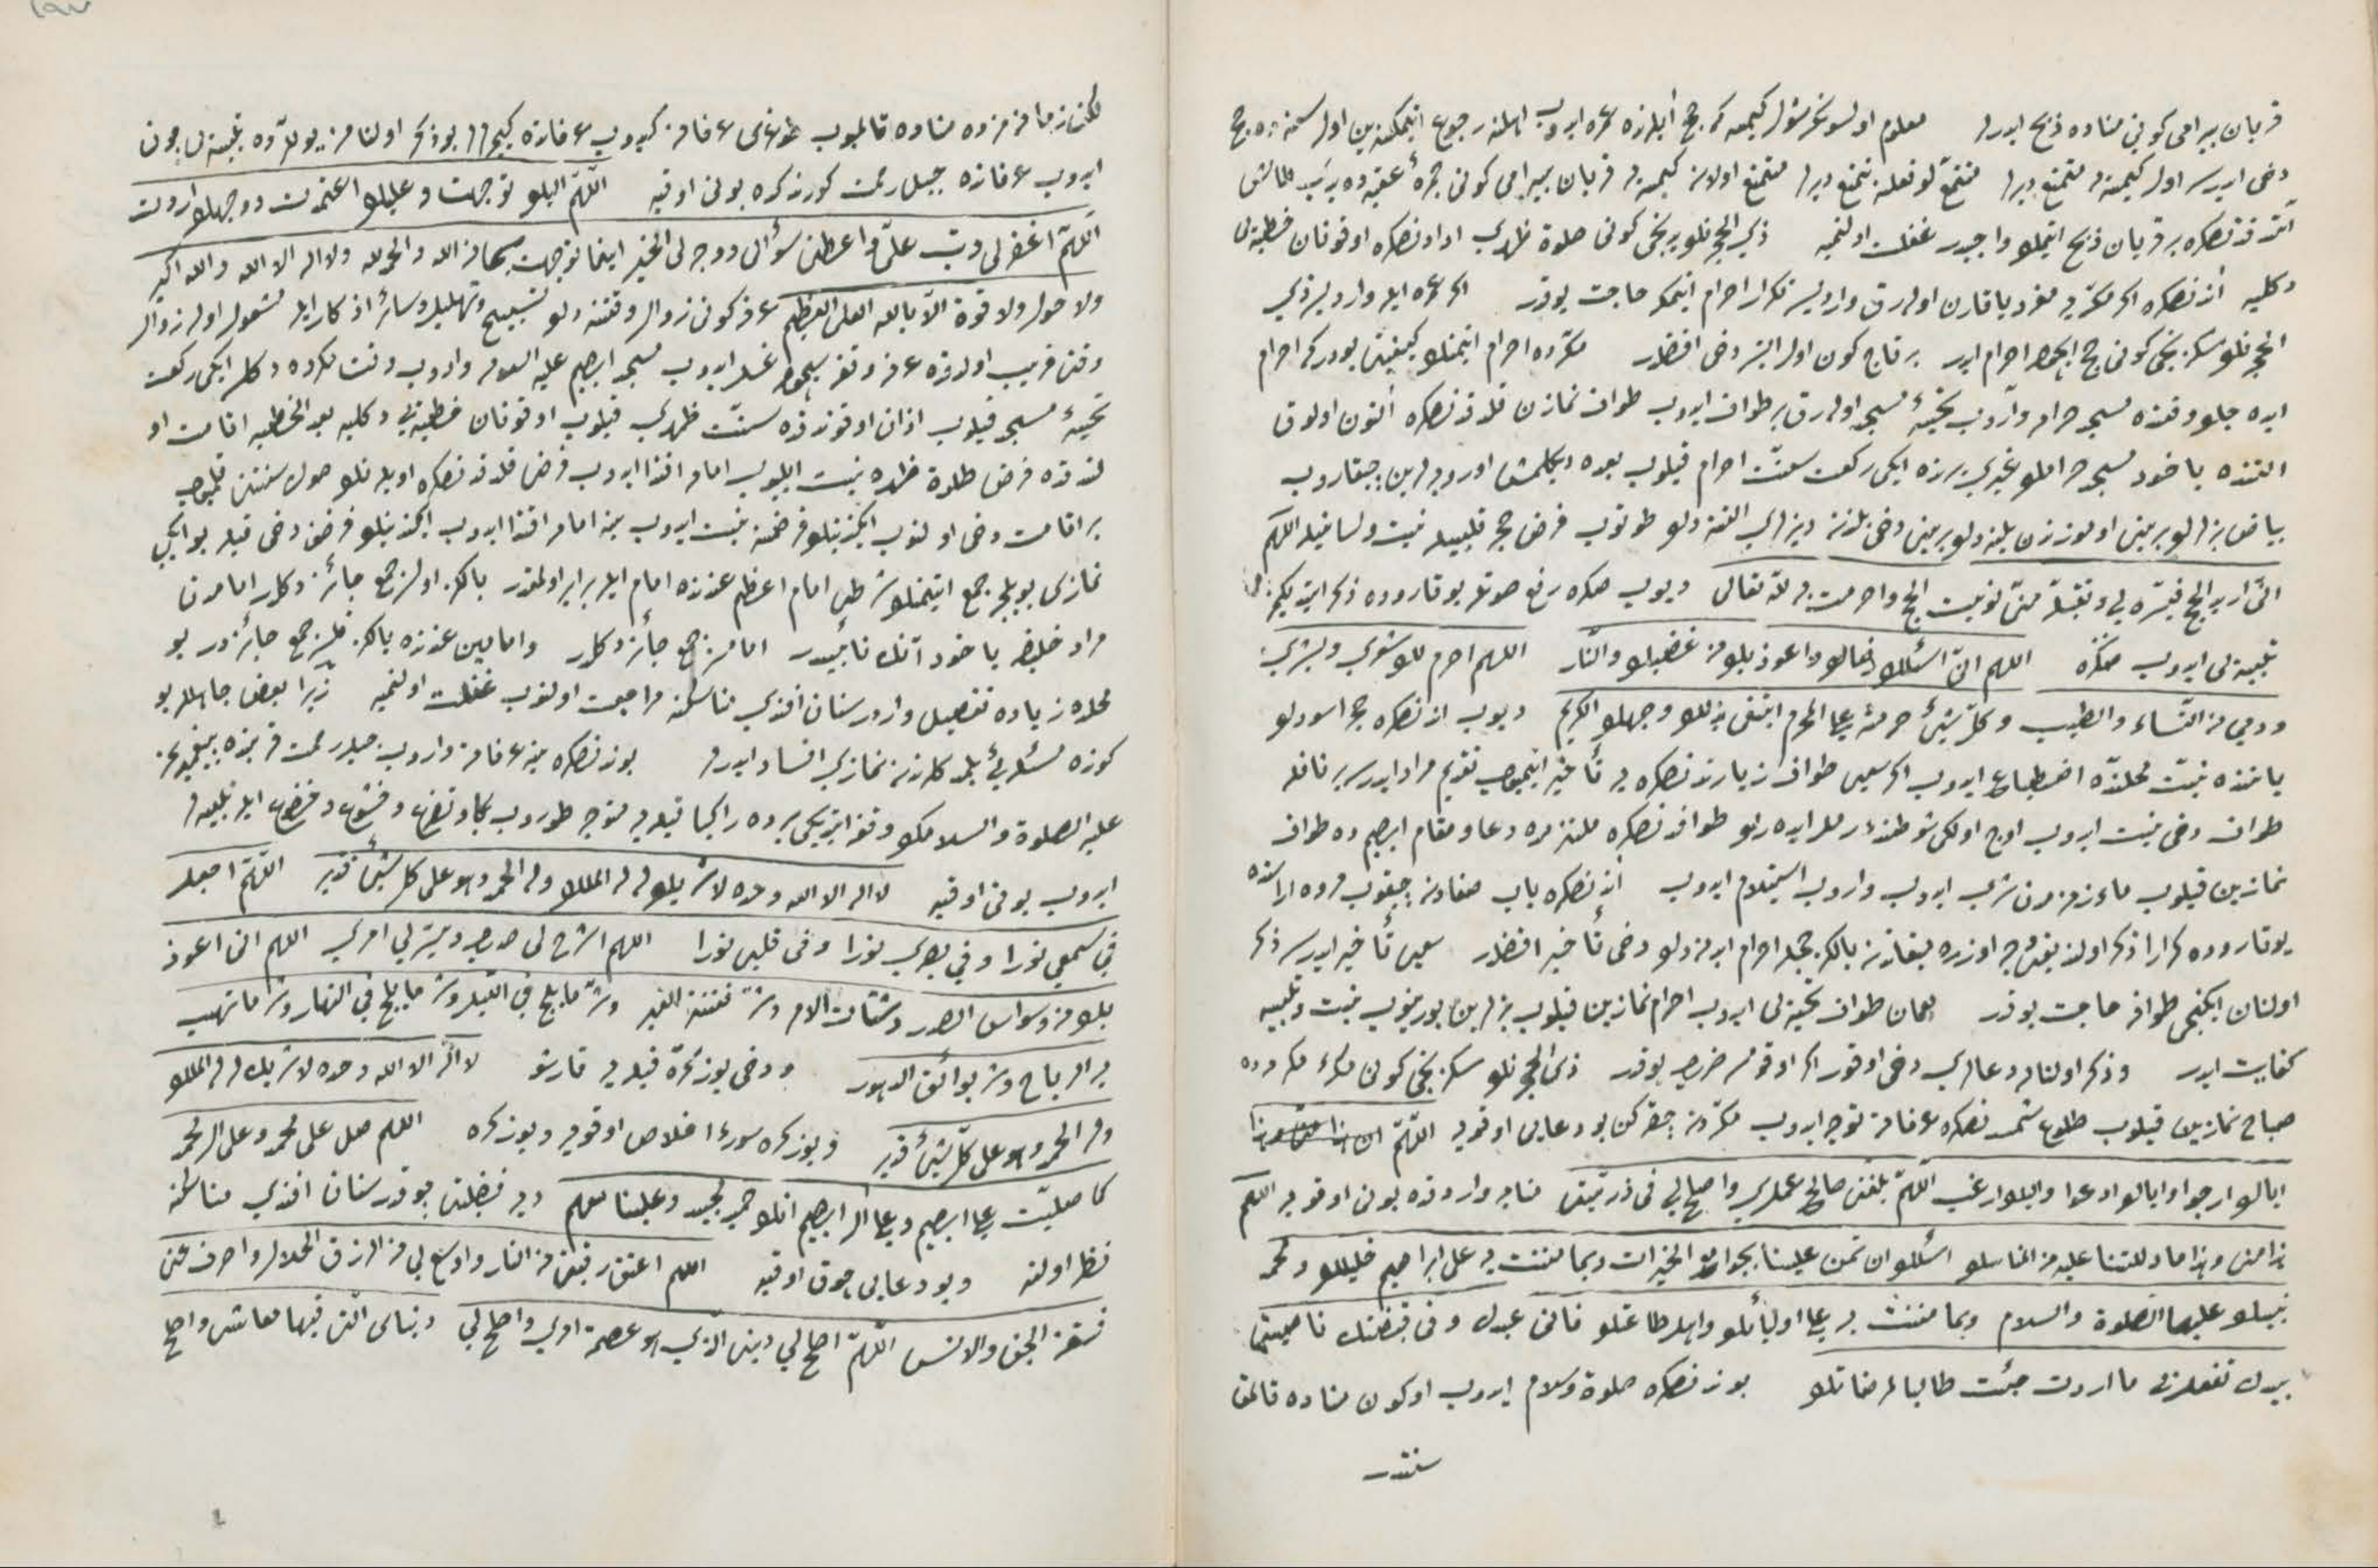 قربان بيرامى كونى مناده ذبح ايدرلر معلوم اولسونكه شول كيمسه كه حج آيلرنده عمره ايدوب اهلنه رجوع ايتمكسزين اول سنه ده حج
دخى ايدرسه اول كيمسه يه متمتع ديرلر متمتع اولان كيمسه قربان بيرامى كونى جمرهٔ عقبه ده يدى طاش
آتدقدنصكره بر قربان ذبح ايتمك واجبدر غفلت اولنميه ذى الحجه نك يدنجى كونى صلوة ظهرى ادادنصكره اوقونان خطبه يى
دكليه آندنصكره اكر مكه يه مفرد يا قارن اولەرق وارديسه تكرار احرام ايتمكه حاجت يوقدر اكر عمره ايله وارديسه ذى
الحجه نك سكزنجى كونى حج ايچون احرام ايدر بر قاچ كون اول ايتسه دخى افضلدر مكه ده احرام ايتمنك كيفيتى بودركه احرام
ايده جك وقتده مسجد حرامه واروب تحيهٔ مسجد اوله رق بر طواف ايدوب طواف نمازن قلدقدنصكره آلتون اولوق
التنده ياخود مسجد حرامك غيرى يرنده ايكى ركعت سنت احرام قيلوب بعده ديكلمش اوروبالرين چيقاروب
بياض بزلرك برينى اوموزندن بلنه دك برينى دخى بلندن ديزلرى التنه دك طوتوب فرض حج قلبيله نيت ولسانيله اللهم
انى اريد الحج فيسره لى وتقبله منى نويت الحج واحرمت به لله تعالى ديوب صكره رفع صوتله يوقاروده ذكر ايتديكمز
تلبيه يى ايدوب صكره اللهم انى اسئلك رضاك واعوذ بك من غضبك والنار اللهم احرم لك شعرى وبشرى
ودمى من النساء والطيب وكل شئ حرمته على المحرم ابتغى بذلك وجهك الكريم ديوب اندنصكره حجر اسودك
ياننده نيت محلنده اضطباع ايدوب اكر سعيى طواف زيارتدنصكره يه تأخير ايتميوب تقديم مراد ايدرسه بر نافله
طواف دخى نيت ايدوب اوج اولكى شوطنده رمل ايده رك طوافدنصكره ملتزمده دعا ومقام ابراهيمده طواف
نمازين قيلوب ماء زمزمدن شرب ايدوب واروب استلام ايدوب آندنصكره باب صفادن چيقوب مروه اراسنده
يوقاروده كرارا ذكر اولنديغى وجه اوزره سعى تأخير ايدرسه ذكر
اولنان ايكنجى طوافه حاجت يوقدر همان طواف تحيه يى ايدوب احرام نمازين قيلوب بزلرين بورينوب نيت وتلبيه
كفايت ايدر وذكر اولنان دعالرى دخى اوقور اكر اوقومسه ضررى يوقدر ذى الحجه نك سكزنجى كونى مكهٔ مكرمه ده
صباح نمازين قيلوب طلوع شمسدنصكره عرفاته توجه ايدوب مكه دن چيقركن بو دعايى اوقويه اللهم
اياك ارجو واياك ادعو واليك ارغب اللهم بلغنى صالح عملى واصلح لى فى ذريتى منايه واردقده بونى اوقويه اللهم
هذا منى وهذا ما دللتنا عليه من المناسك اسئلك ان تمن علينا بجوامع الخيرات وبما مننت به على ابراهيم خليلك ومحمد
نبيك عليهما الصلوة والسلام وبما مننت به على اوليائك واهل طاعتك فانى عبدك وفى قبضتك ناصيتى
بيدك تفعل بى ما اردت جئت طالبا مرضاتك بوندنصكره صلوة وسلام ايدوب او كون مناده قالمق
سنتدر
لكن زمانمزده مناده قالميوب طوغرى عرفاته كيدوب عرفاتده كيجه لرلر بو ذكر اولنان يوللرده تلبيه يى چوق
ايدوب عرفاتده جبل رحمت كورندكده بونى اوقيه اللهم اليك توجهت وعليك اعتمدت ووجهك اردت
اللهم اغفر لى وتب على واعطنى سؤالى ووجه لى الخير اينما توجهت سبحان الله والحمد لله ولا اله الا الله والله اكبر
ولا حول ولا قوة الا بالله العلى العظيم عرفه كونى زوال وقتنه دك تسبيح وتهليل وسائر اذكار ايله مشغول اوله زوال
وقتى قريب اولدقده عرفه وقفه سيچون غسل ايدوب مسجد ابراهيم عليه السلامه واروب وقت مكروه دكلسه ايكى ركعت
تحيهٔ مسجد قيلوب اذان اوقوندقده سنت ظهرى قيلوب اوقونان خطبه يى دكليه بعد الخطبه اقامت او
لندقده فرض صلوة ظهره نيت ايليوب امامه اقتدا ايدوب فرض قلدقدنصكره اويله نك صوك سنتنى قلميوب
بر اقامت دخى اولنوب ايكندينك فرضنه نيت ايدوب ينه امامه اقتدا ايدوب ايكندينك فرضنى دخى قيله بو ايكى
نمازى بويله جمع ايتمنك شرطى امام اعظم عندنده امام ايله برابر اولمقدر يالكز اولنمز جمع جائز دكلدر امامدن
مراد خليفه ياخود آنك نائبيدر امامسز جمع جائز دكلدر وامامين عندنده يالكز قلنسه جمع جائزدر بو
محلده زياده تفصيل واردر سنان افندى مناسكنه مراجعت اولنوب غفلت اولنميه زيرا بعض جاهللر بو
كونده مسئله يى بلمدكلرندن نمازى افساد ايدرلر بوندنصكره ينه عرفاته واروب جبل رحمت قربنده پيغمبرمز
عليه الصلوة والسلامك وقفه ايتديكى يرده راكبا قبله يه متوجه طوروب بكا وتضرع وخشوع وخضوع ايله تلبيه لر
ايدوب بونى اوقيه لا اله الا الله وحده لا شريك له له الملك وله الحمد وهو على كل شئ قدير اللهم اجعل
فى سمعى نورا وفى بصرى نورا وفى قلبى نورا اللهم اشرح لى صدرى ويسر لى امرى اللهم انى اعوذ
بك من وسواس الصدر وشتات الامر وشر فتنة القبر وشر ما يلج فى الليل وشر ما يلج فى النهار وشر ما تهب
به الرياح وشر بوائق الدهور ودخى يوز كره قبله يه قارشو لا اله الا الله وحده لا شريك له له الملك
وله الحمد وهو على كل شئ قدير ويوز كره سورهٔ اخلاص اوقويه ويوز كره اللهم صل على محمد وعلى ال محمد
كما صليت على ابراهيم وعلى آل ابراهيم انك حميد مجيد وعلينا معهم ديه فضيلتى چوقدر سنان افندى مناسكنه
نظر اولنه وبو دعايى چوق اوقيه اللهم اعتق رقبتى من النار واوسع لى من الرزق الحلال واصرف عنى
فسقة الجن والانس اللهم اصلح لى دينى الذى هو عصمة امرى واصلح لى دنياى التى فيها معاشى واصلح